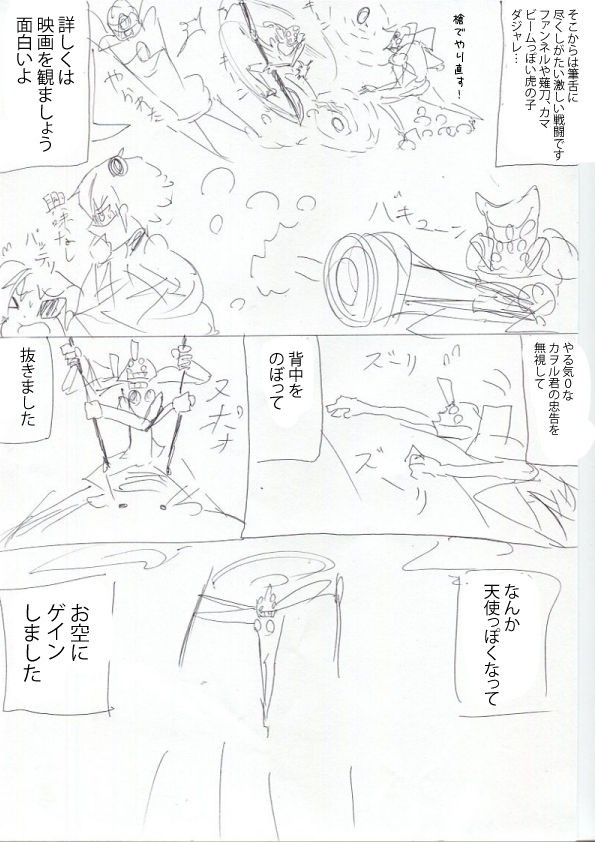 そこからは筆舌に
尽くしがたい激しい戦闘です
ファンネルや薙刀、カマ
ビームっぽい虎の子
ダジャレ…
槍でやり直す！
やられた
詳しくは
映画を観ましょう
面白いよ
バキューーン
興味なし
バッテリ
やる気０な
カヲル君の忠告を
無視して
ズーリ
ズーリ
背中を
のぼって
スポポ
抜きました
なんか
天使っぽくなって
お空に
ゲイン
しました